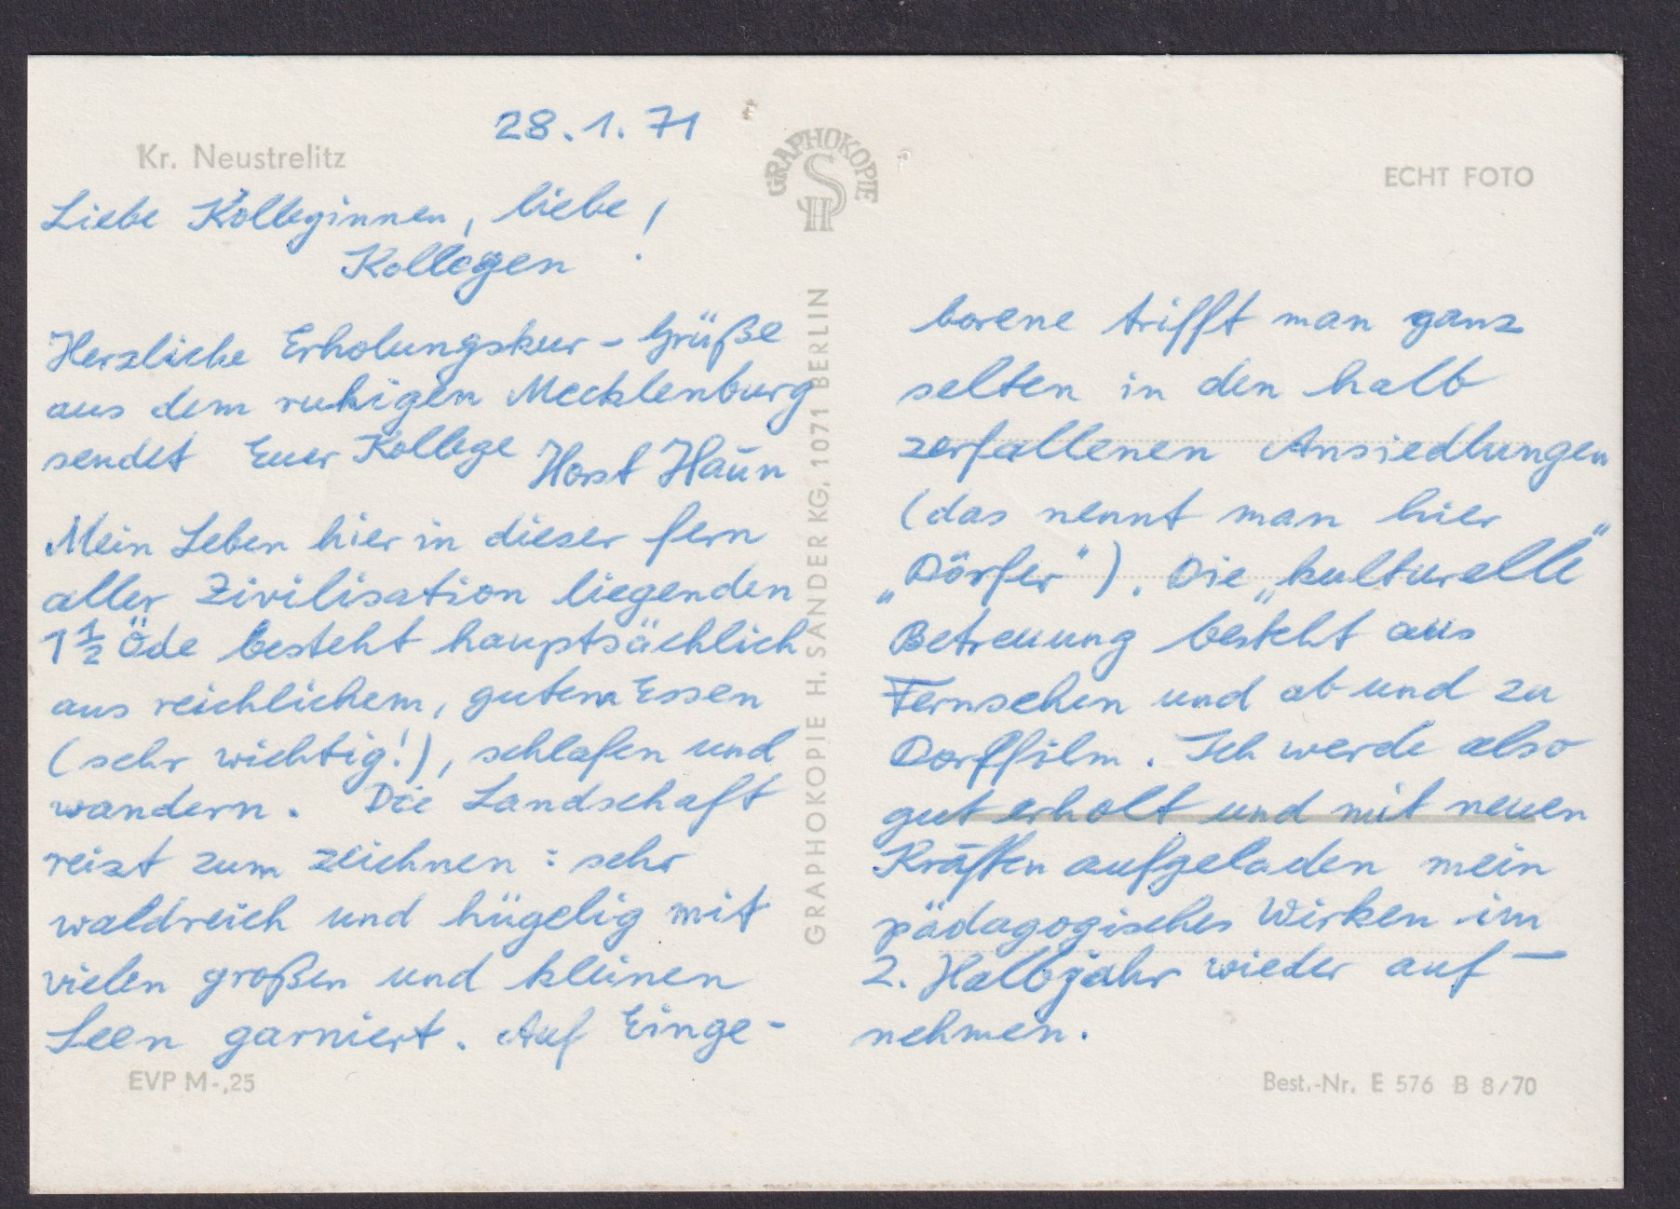 28.1.71
Kr. Neustrelitz
Liebe Kolleginnen, liebe !
Kollegen
Herzliche Erholungskur-Grüße
aus dem ruhigen Mecklenburg
sendet Euer Kollege Horst Haun
Mein Leben hier in dieser fern
aller Zivilisation liegenden
1 1/2 Öde besteht hauptsächlich
aus reichlichem, gutem Essen
(sehr wichtig!), schlafen und
wandern. Die Landschaft
reizt zum zeichnen: sehr
waldreich und hügelig mit
vielen großen und kleinen
Seen garniert. Auf Einge-
EVP M-,25
GRAPHOKOPIE
SH
GRAPHOKOPIE H. SANDER KG, 1071 BERLIN
ECHT FOTO
borene trifft man ganz
selten in den halb
zerfallenen Ansiedlungen
(das nennt man hier
„Dörfer"). Die „kulturelle"
Betreuung besteht aus
Fernsehen und ab und zu
Dorffilm. Ich werde also
gut erholt und mit neuen
Kräften aufgeladen mein
pädagogisches Wirken im
2. Halbjahr wieder auf-
nehmen.
Best.-Nr. E 576 B 8/70